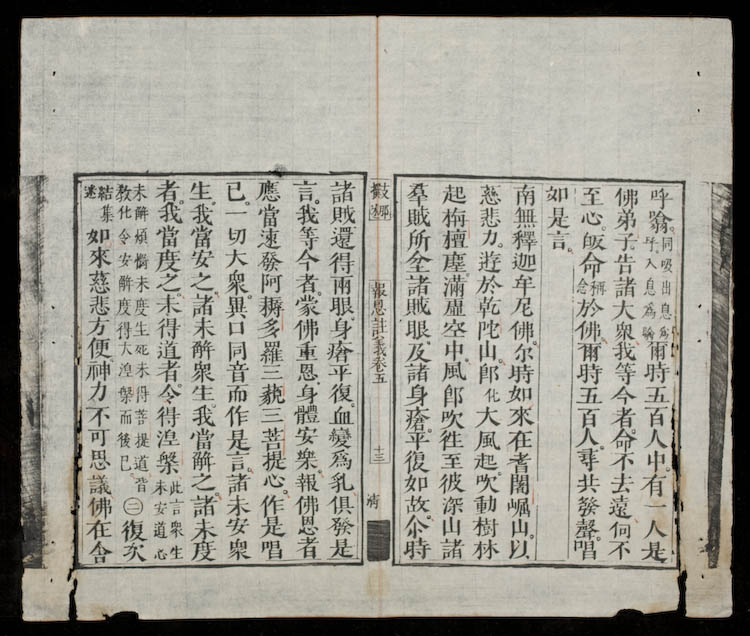 呼翕同吸出息為呼入息為翕爾時五百人中有一人是
佛弟子告諸大衆我等今者命不去遠何不
至心皈命稱念於佛爾時五百人尋共發聲唱
如是言
南無釋迦牟尼佛尔時如來在耆闍崛山以
慈悲力遊於乾陀山郎化大風起吹動樹林
起栴檀塵滿虛空中風郎吹徃至彼深山諸
羣賊所坌諸賊眼及諸身瘡平復如故尒時
報恩註義卷五
十三
諸賊還得兩眼身瘡平復血變為乳俱發是
言我等今者蒙佛重恩身體安樂報佛恩者
應當速發阿耨多羅三藐三菩提心作是唱
已一切大衆異口同音而作是言諸未安衆
生我當安之諸未解衆生我當解之諸未度
者我當度之未得道者令得涅槃此言衆生未安道心
未解煩惱未度生死未得菩提道皆教化令安解度得大涅槃而後已㊁復次
結集述如來慈悲方便神力不可思議佛在舍